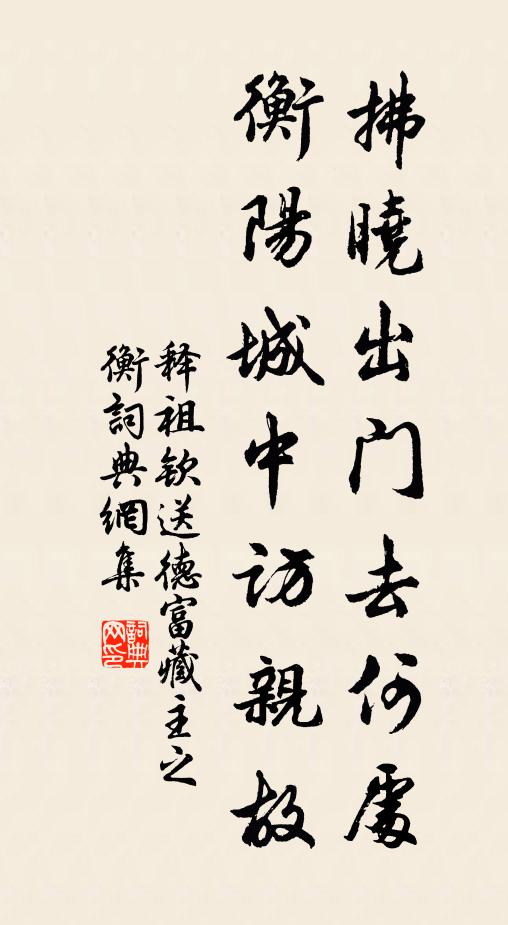 拂曉出門去何處
衡陽城中訪親故
释祖欽送德富藏主之
衡詞典網集
詞典
网印